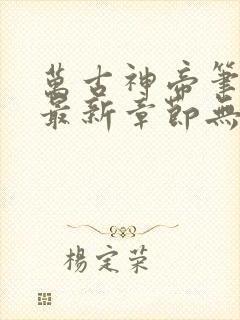 萬古神帝筆
最新章節無
楊定榮